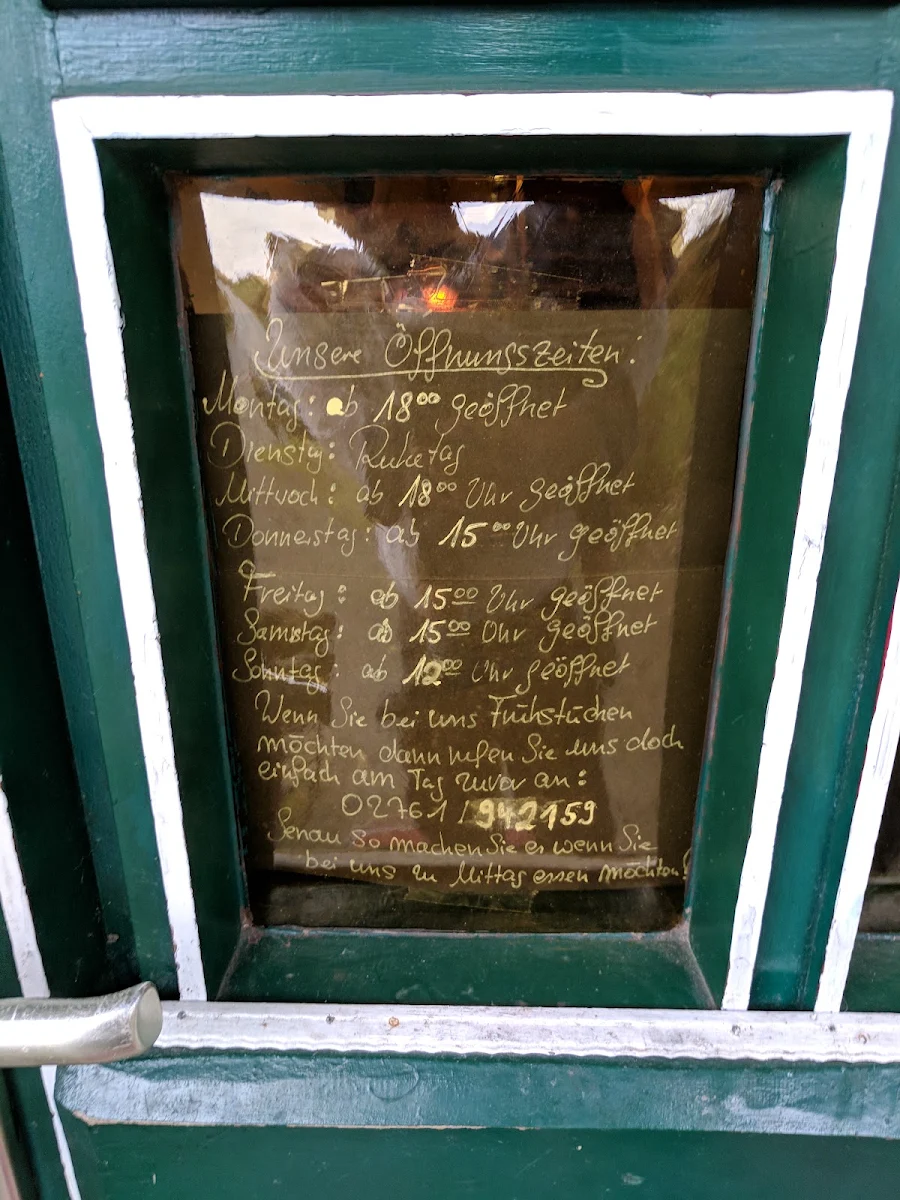 Unsere Öffnungszeiten:
Montag: ab 18⁰⁰ geöffnet
Dienstag: Ruhetag
Mittwoch: ab 18⁰⁰ Uhr geöffnet
Donnerstag: ab 15⁰⁰ Uhr geöffnet
Freitag: ab 15⁰⁰ Uhr geöffnet
Samstag: ab 15⁰⁰ Uhr geöffnet
Sonntag: ab 12⁰⁰ Uhr geöffnet
Wenn Sie bei uns Frühstücken
möchten dann rufen Sie uns doch
einfach am Tag zuvor an:
02761/942159
Genau so machen Sie es wenn Sie
bei uns zu Mittag essen möchten!